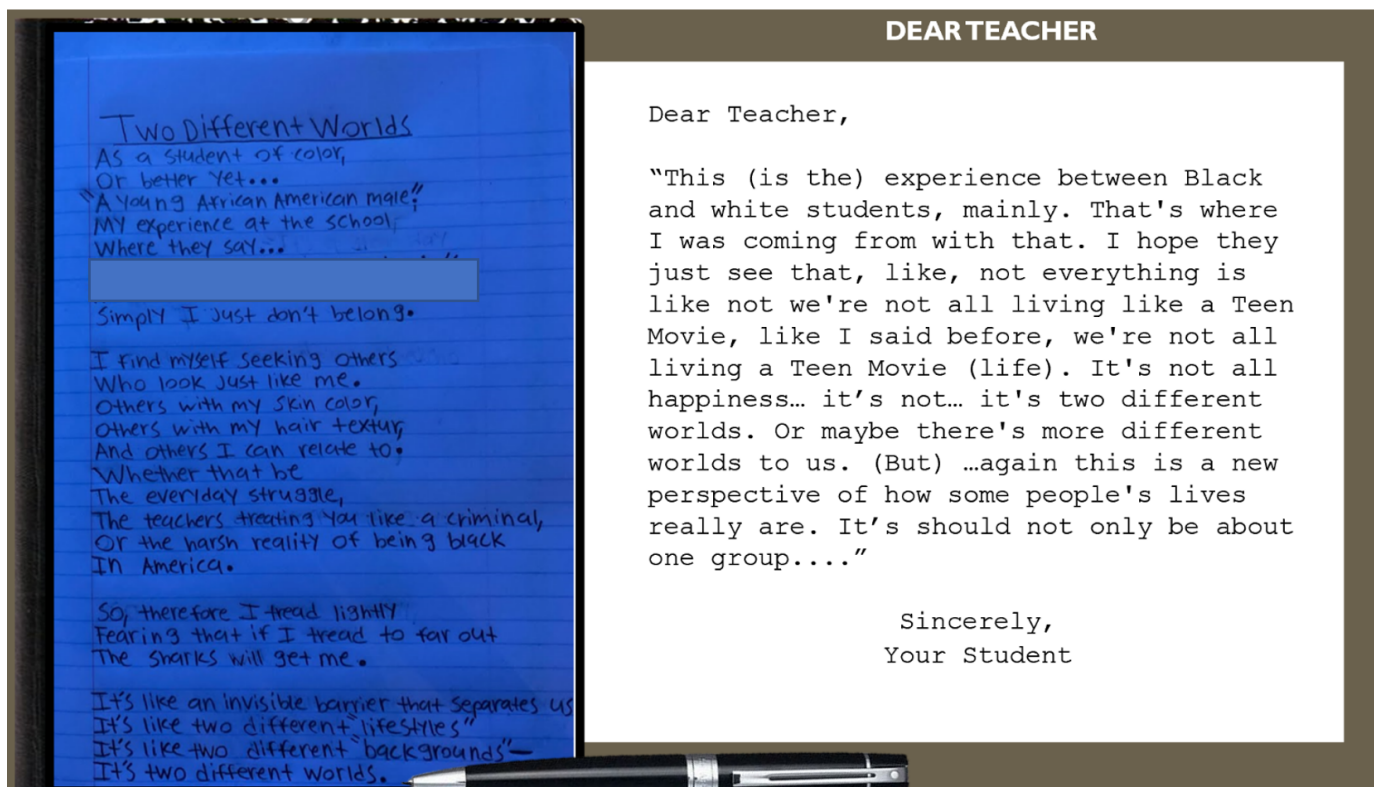 DEAR TEACHER
Two Different Worlds
As a student of color,
Or better yet...
"A young African American male,"
My experience at the school,
Where they say...
Simply I just don't belong.
I find myself seeking others
Who look just like me.
Others with my skin color,
Others with my hair textur,
And others I can relate to.
Whether that be
The everyday struggle,
The teachers treating you like a criminal,
Or the harsh reality of being black
In America.
So, therefore I tread lightly
Fearing that if I tread to far out
The sharks will get me.
It's like an invisible barrier that separates us
It's like two different "lifestyles"
It's like two different "backgrounds"—
It's two different worlds.
Dear Teacher,
“This (is the) experience between Black
and white students, mainly. That's where
I was coming from with that. I hope they
just see that, like, not everything is
like not we're not all living like a Teen
Movie, like I said before, we're not all
living a Teen Movie (life). It's not all
happiness… it’s not… it's two different
worlds. Or maybe there's more different
worlds to us. (But) …again this is a new
perspective of how some people's lives
really are. It’s should not only be about
one group....”
Sincerely,
Your Student